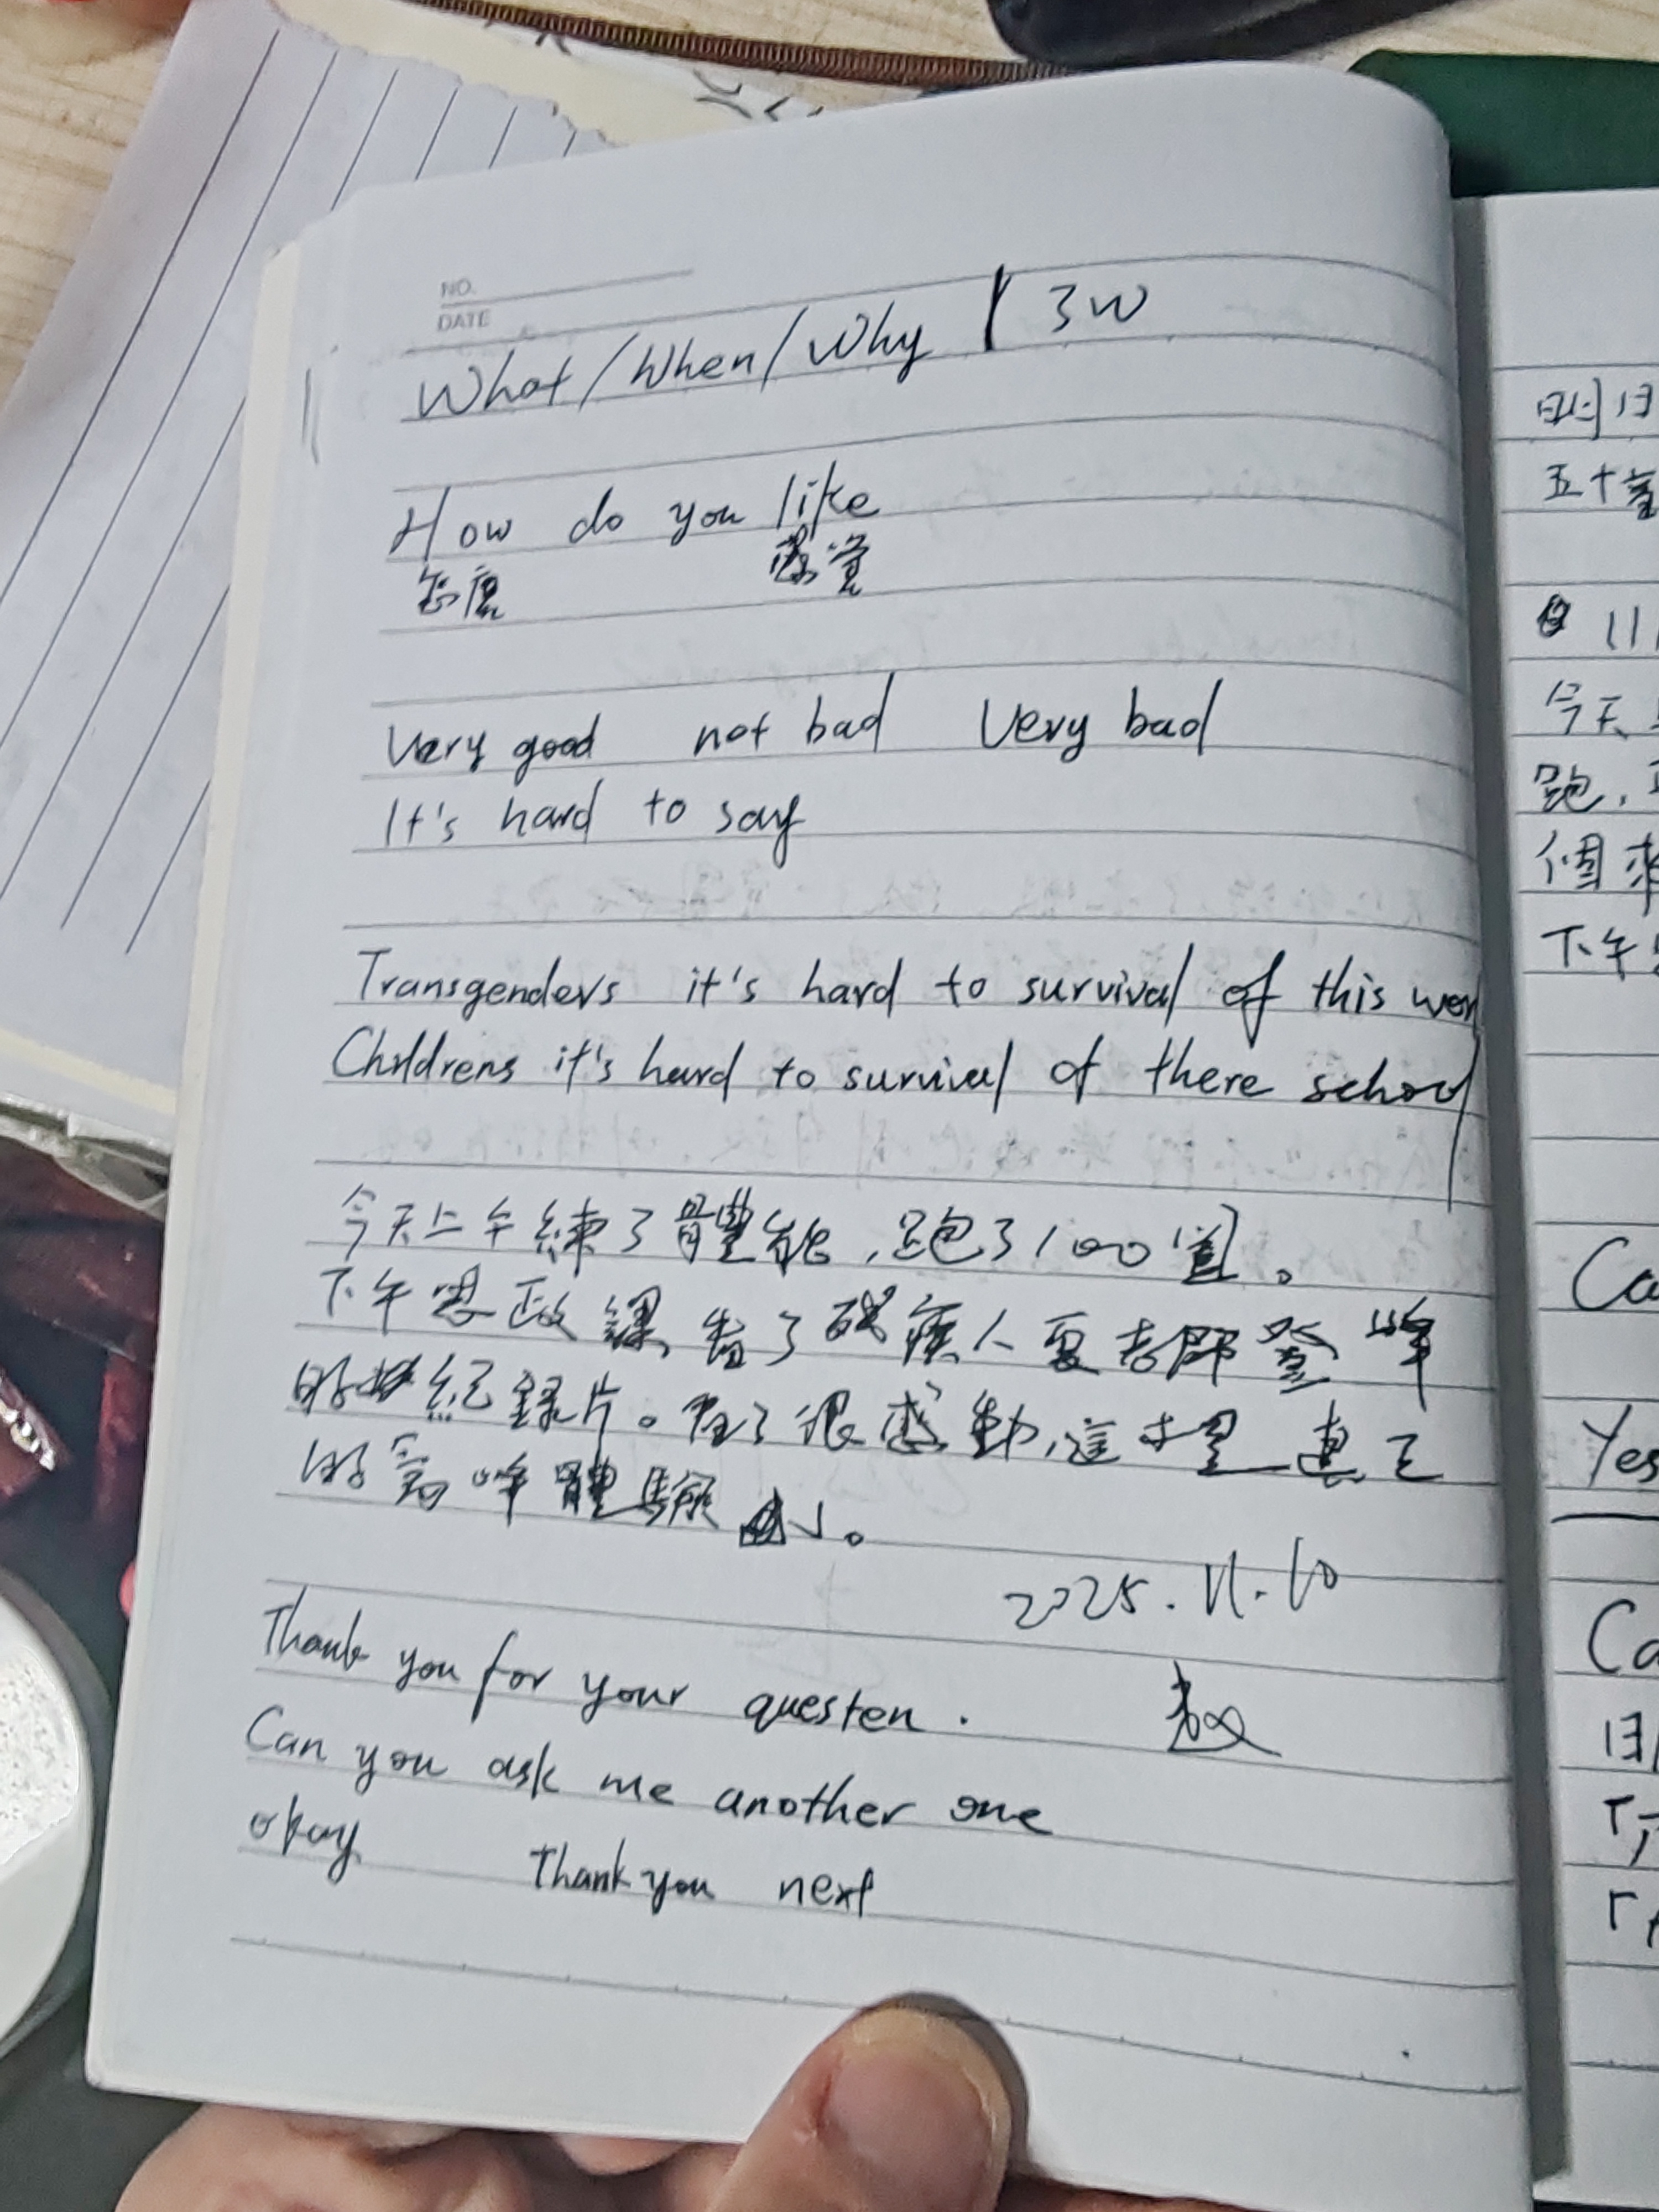 NO.
DATE
What/When/Why | 3W
How do you like
怎麼 感覺
Very good not bad Very bad
It's hard to say
Transgenders it's hard to survival of this wor
Childrens it's hard to survival of there school
今天上午練了體能,跑了100道。
下午思政課,看了殘疾人夏老師登峰
的紀錄片。看了很感動,這才是真正
的高峰體驗。
2025.11.10
Thank you for your questen.
Can you ask me another one
okay Thank you next
五十
11
今天
跑,
個來
下午
Ca
Yes
Ca